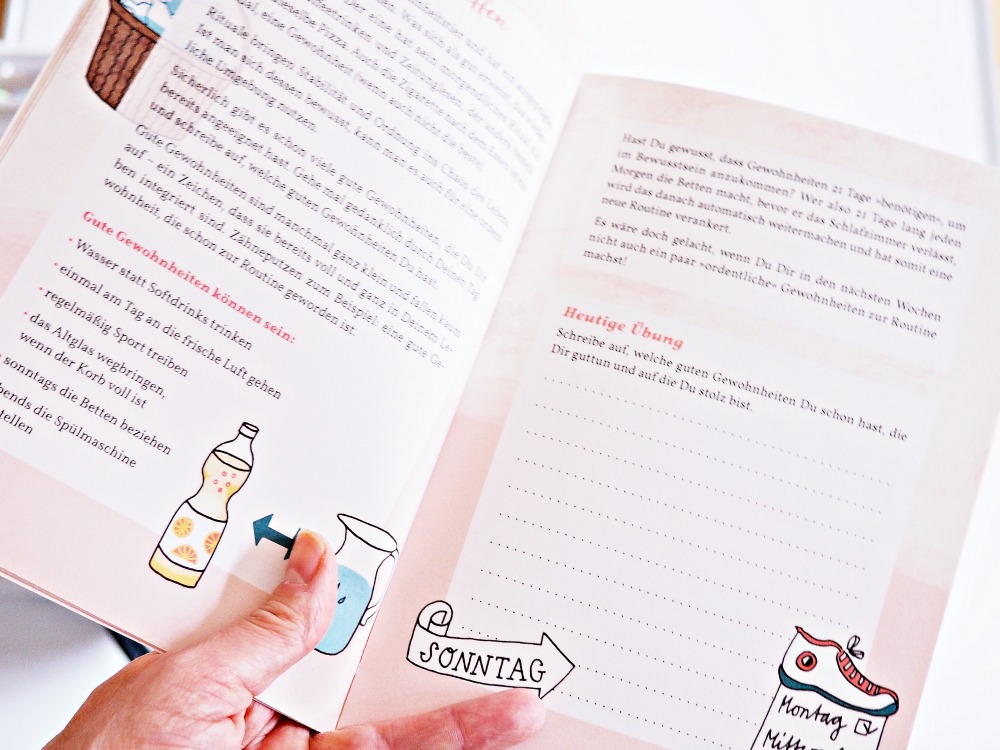 ffen
dieselbe Pizza. Auch die Zigarette nach dem Essen
Rituale bringen Stabilität und Ordnung ins Chaos des Lebens.
Ist man sich dessen bewusst, kann man es auch für eine ordent-
liche Umgebung nutzen.
Sicherlich gibt es schon viele gute Gewohnheiten, die Du Dir
bereits angeeignet hast. Gehe mal gedanklich durch Deinen Tag
und schreibe auf, welche guten Gewohnheiten Du hast.
Gute Gewohnheiten sind manchmal ganz klein und fallen kaum
auf – ein Zeichen, dass sie bereits voll und ganz in Deinem Le-
ben integriert sind. Zähneputzen zum Beispiel: eine gute Ge-
wohnheit, die schon zur Routine geworden ist.
Gute Gewohnheiten können sein:
• Wasser statt Softdrinks trinken
• einmal am Tag an die frische Luft gehen
• regelmäßig Sport treiben
• das Altglas wegbringen,
wenn der Korb voll ist
• sonntags die Betten beziehen
bends die Spülmaschine
tellen
Hast Du gewusst, dass Gewohnheiten 21 Tage »benötigen«, um
im Bewusstsein anzukommen? Wer also 21 Tage lang jeden
Morgen die Betten macht, bevor er das Schlafzimmer verlässt,
wird das danach automatisch weitermachen und hat somit eine
neue Routine verankert.
Es wäre doch gelacht, wenn Du Dir in den nächsten Wochen
nicht auch ein paar »ordentliche« Gewohnheiten zur Routine
machst!
Heutige Übung
Schreibe auf, welche guten Gewohnheiten Du schon hast, die
Dir guttun und auf die Du stolz bist.
SONNTAG
Montag